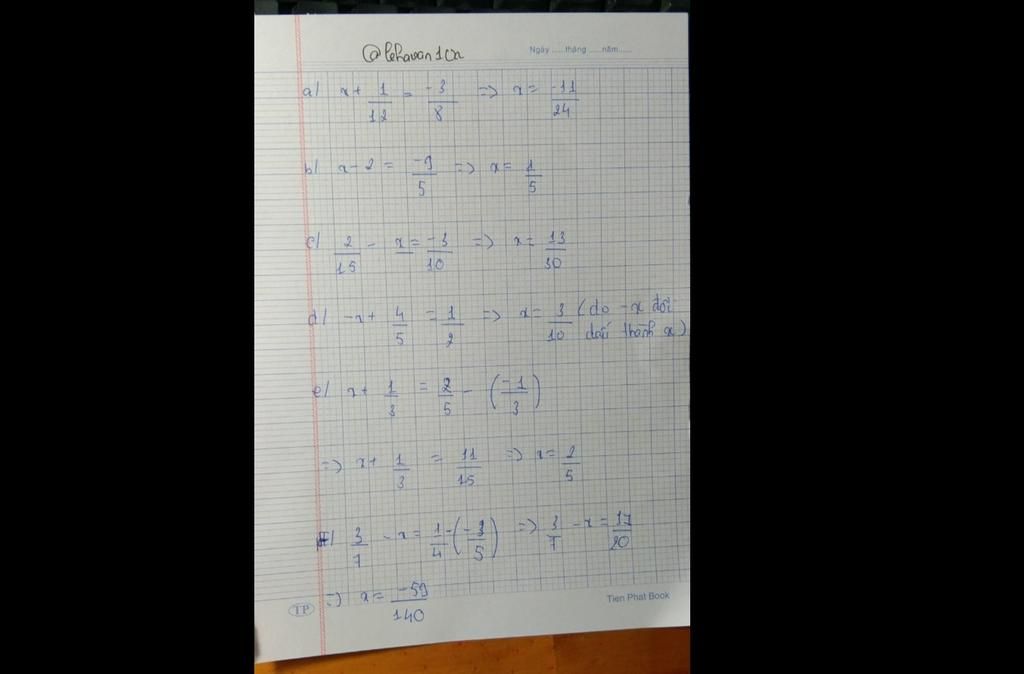 @lehavan10a
Ngày ..... tháng ..... năm .....
a) x + 1/12 = -3/8 => x = -11/24
b) x - 2 = -9/5 => x = 1/5
c) 2/15 - x = -3/10 => x = 13/30
d) -x + 4/5 = 1/2 => x = 3/10 (do -x đổi
dấu thành x)
e) x + 1/3 = 2/5 - (-1/3)
=> x + 1/3 = 11/15 => x = 2/5
f) 3/7 - x = 1/4 - (-3/5) => 3/7 - x = 17/20
=> x = -59/140
TP
Tien Phat Book